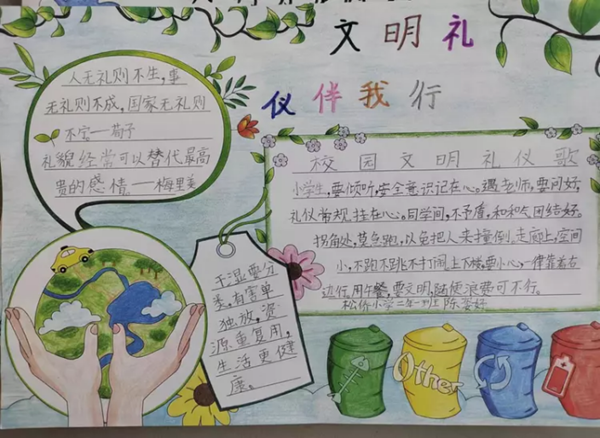 文明礼
仪伴我行
人无礼则不生,事
无礼则不成,国家无礼则
不宁—荀子
礼貌经常可以替代最高
贵的感情—梅里美
校园文明礼仪歌
小学生,要倾听,安全意识记在心。遇老师,要问好,
礼仪常规挂在心。同学间,不矛盾,和和气气团结好。
拐角处,莫急跑,以免把人来撞倒,走廊上,空间
小,不跑不跳不打闹,上下楼,要小心,一律靠着右
边行,用午餐,要文明,随便浪费可不行。
小学二年一班陈
干湿要分
类,有害单
独放,资
源重复用,
生活更健
康。
Other